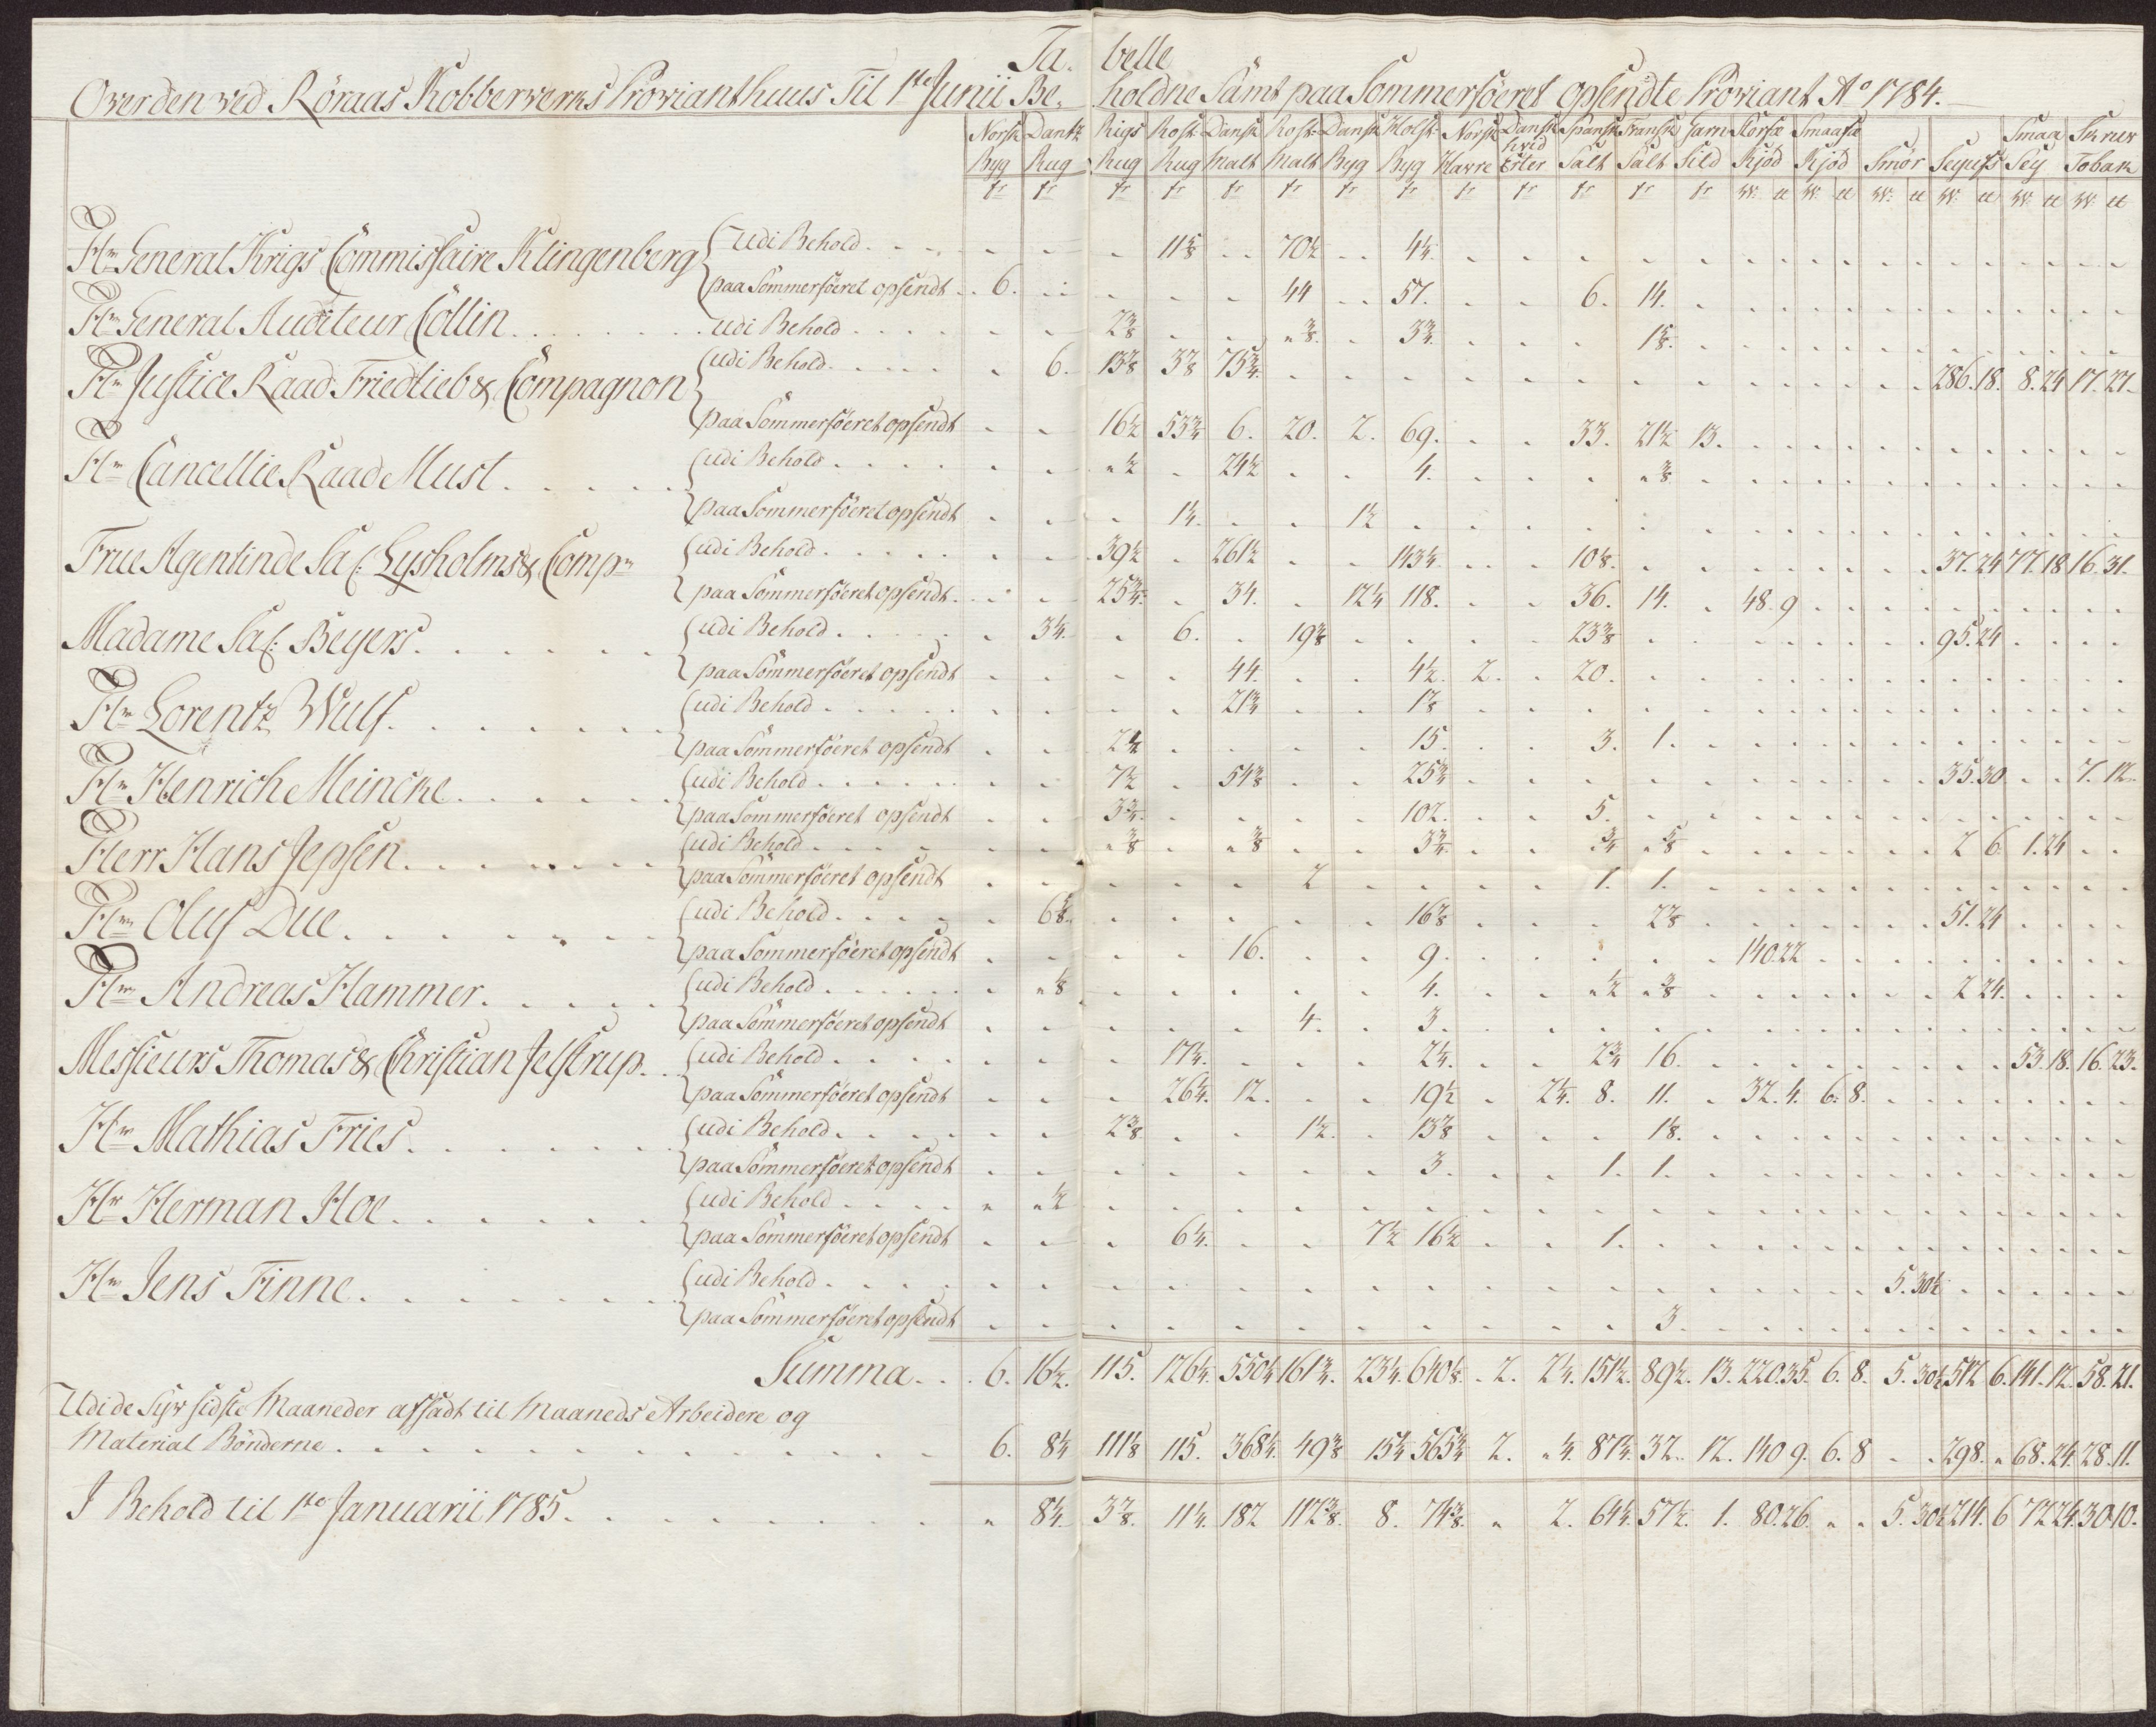 Tabelle
Over den ved Röraas Kobberverks Provianthuus Til 1ste Junii Beholdne Samt paa Sommerföeret opsendte Proviant Ao 1784.
Norsk Dantz Rigs Rost Dansk Rost Dansk Holst Norsk Dansk Spansk Fransk Garn Storfæ Smaafæ Smaa Skruv
Byg Rug Rug Rug Malt Malt Byg Byg Havre hvid Erter Salt Salt Sild Kjöd Kjöd Smör Seyufs Sey Tobak
Hr General Krigs Commissaire Klingenberg
Udi Behold 11 5/8 70 1/2 4 1/4.
paa Sommerföeret opsendt 6. 44 57. 6. 14.
Hr General Auditeur Cöllin udi Behold 2 3/8 " 3/8. 3 3/4. 1 5/8.
Hr Justice Raad Friedlieb & Compagnon
udi Behold 6. 13 7/8 3 7/8 73 3/4. 286. 18. 8. 24 17. 27.
paa Sommerföeret opsendt 16 1/2 53 3/4 6. 20. 2. 69. 33. 21 1/2 13.
Hr Cancellie Raad Must
udi Behold " 1/2 24 1/2 4. " 3/8
paa Sommerföeret opsendt 1 1/4. 1 1/2
Frue Agentinde Sal: Lysholms & Compn
udi Behold 39 1/2 261 1/2 143 1/4. 10 1/8. 37. 24 77. 18 16. 31.
paa Sommerföeret opsendt 25 3/4. 34. 12 1/4 118. 36. 14. 48. 9
Madame Sal: Beyers
udi Behold 3 1/4. 6. 19 3/8 23 3/8 95. 24
paa Sommerföeret opsendt 44. 4 1/2. 2. 20.
Hr Lorentz Wulf
udi Behold 21 3/4 1 7/8
paa Sommerföeret opsendt 2 1/2 15. 3. 1.
Hr Henrich Meincke
udi Behold 7 1/2 54 3/8 25 3/4 35. 30 7. 12.
paa Sommerföeret opsendt 3 3/4. 102. 5.
Herr Hans Jepsen
udi Behold " 3/8 " 3/8 3 3/4. 3/4 " 5/8 2 6 1. 24
paa Sommerföeret opsendt 2 1. 1.
Hr Oluf Due
udi Behold 6 5/8. 16 7/8 2 7/8 51. 24
paa Sommerföeret opsendt 16. 9. 140 22
Hr Andreas Hammer
udi Behold " 1/8 4. " 1/2 " 3/8 2 24.
paa Sommerföeret opsendt 4. 3.
Messieurs Thomas & Christian Jelstrup
udi Behold 17 1/4. 2 1/4. 2 3/4 16. 53. 18. 16. 23.
paa Sommerföeret opsendt 26 1/4. 12. 19 1/2 2 1/4. 8. 11. 32. 4. 6. 8.
Hr Mathias Fries
udi Behold 2 3/8. 1 1/2. 13 7/8 1 1/8.
paa Sommerföeret opsendt 3. 1. 1.
Hr Herman Hoe
udi Behold " " 1/2
paa Sommerföeret opsendt 6 1/4. 7 1/2 16 1/2 1.
Hr Jens Finne
udi Behold 5. 30 1/2
paa Sommerföeret opsendt 3.
Summa 6. 16 1/2. 115. 126 1/4. 550 1/4 161 3/4. 23 1/4. 640 1/8. 2. 2 1/4. 151 1/2. 89 1/2. 13. 220 35. 6. 8. 5. 30 1/2 512 6. 141. 12. 58. 21.
Udi de Syv sidste Maaneder afsadt til Maaneds Arbeidere og
Material Bönderne 6. 8 1/4 111 1/8 115. 368 1/4. 49 3/8 15 1/4 565 3/4 2. " 1/4. 87 1/4. 32. 12. 140 9. 6. 8 298. " 68. 24. 28. 11.
I Behold til 1ste Januarii 1785. " 8 1/4. 3 7/8. 11 1/4. 182 112 3/8. 8. 74 3/8. " 2. 64 1/4. 57 1/2. 1. 80. 26. " " 5. 30 1/2 214. 6 72 24. 30 10.